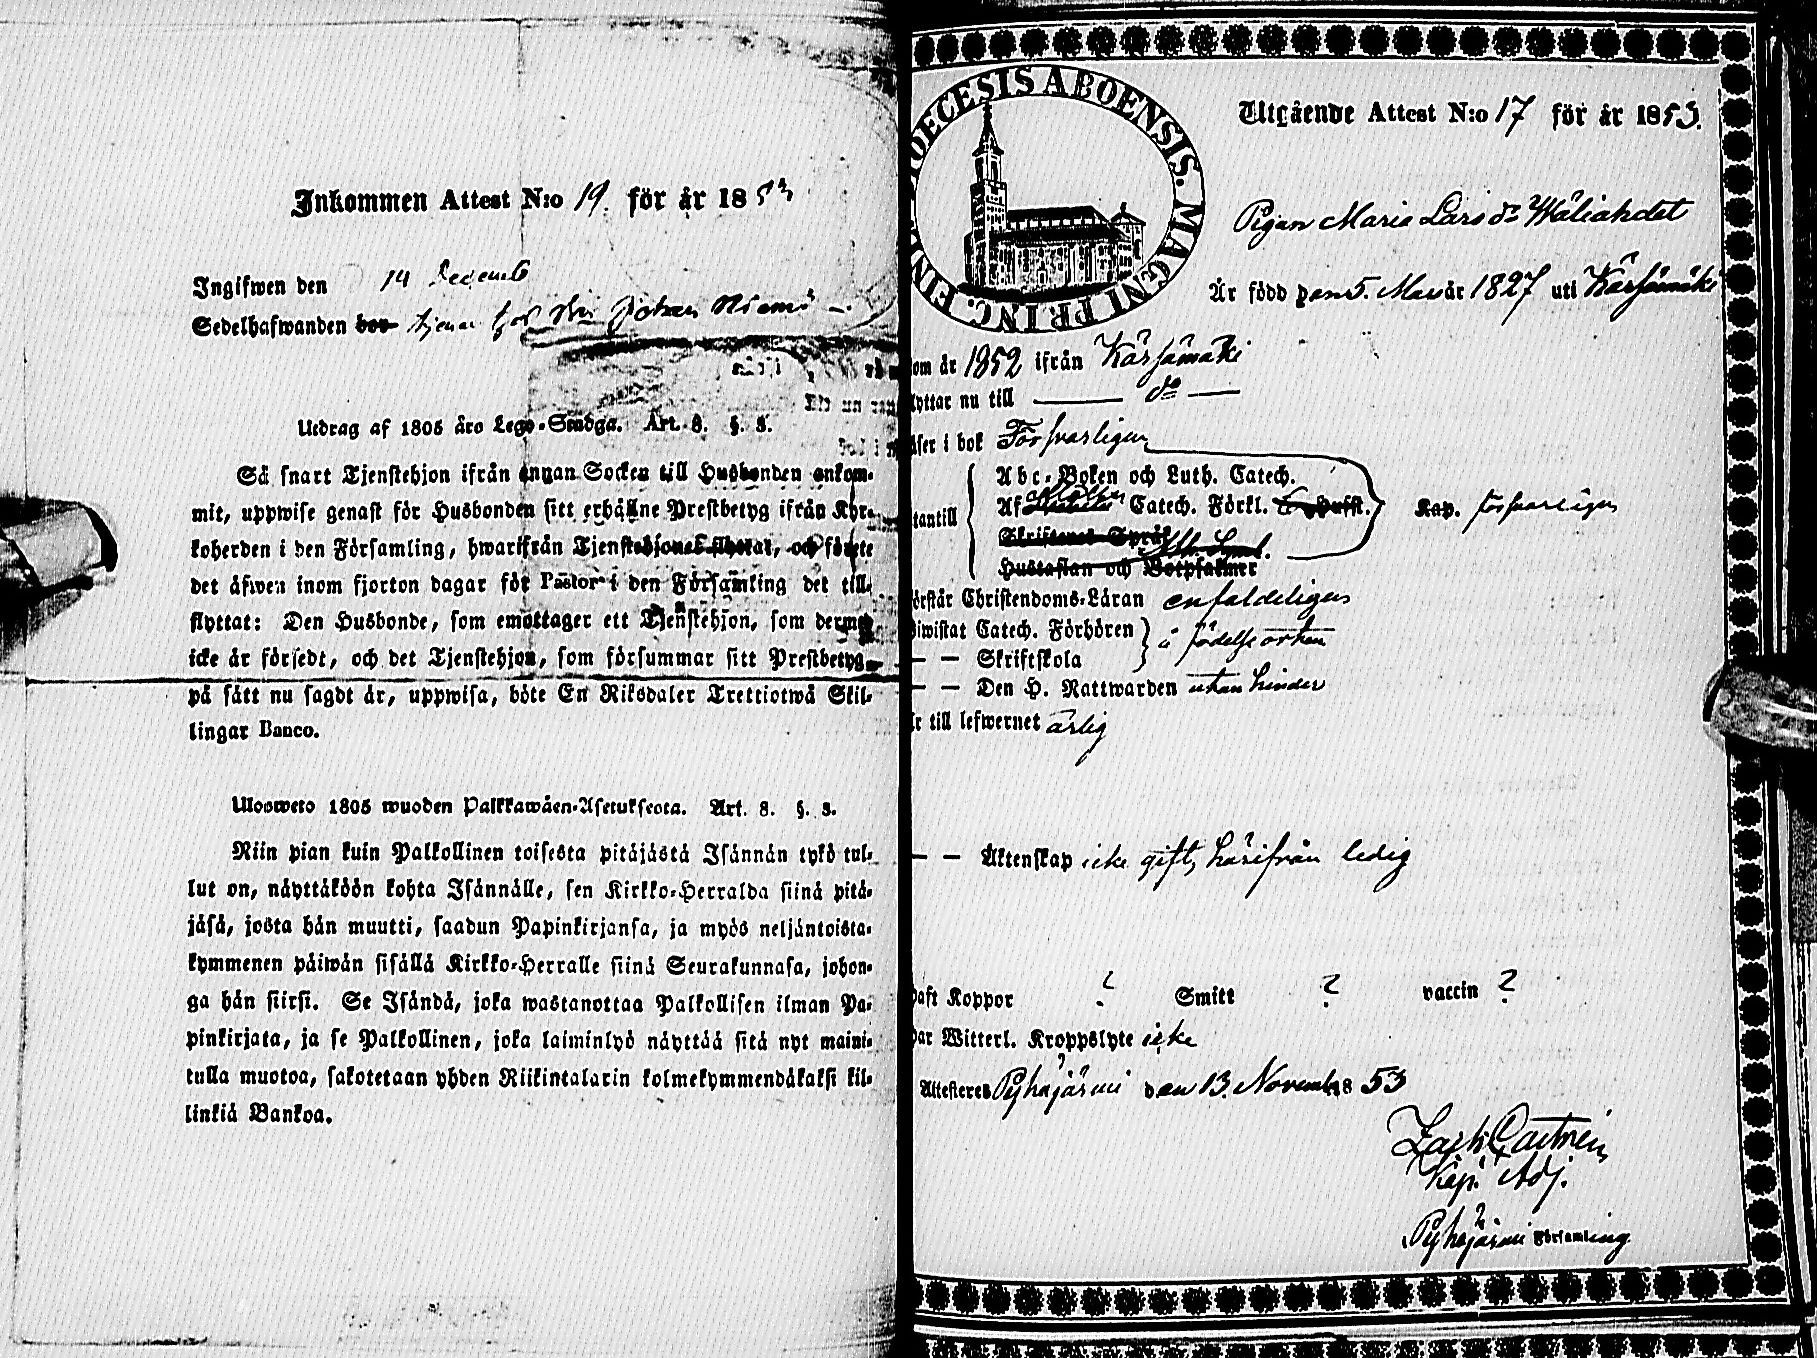 Inkommen Attest N:o 19. för år 1853
Ingifwen den 14 Decemb
Sedelhafwanden boo tjenar hos Johan Niemi
Utdrag af 1805 års Lego-Stadga. Art. 8. §. 3.
Så snart Tjenstehjon ifrån annan Socken till Husbonden ankom-
mit, uppwise genast för Husbonden sitt erhållne Prestbetyg ifrån Kyr-
koherden i den Församling, hwarifrån Tjenstehjonet flyttat, och förete
det äfwen inom fjorton dagar för Pastor i den Församling det till-
flyttat: Den Husbonde, som emottager ett Tjenstehjon, som dermed
icke är försedt, och det Tjenstehjon, som försummar sitt Prestbetyg
på sätt nu sagdt är, uppwisa, böte En Riksdaler Trettiotwå Skil-
lingar Banco.
Ulosweto 1805 wuoden Palkkawäen-Asetuksesta. Art. 8. §. 3.
Niin pian kuin Palkollinen toisesta pitäjästä Isännän tykö tul-
lut on, näyttäköön kohta Isännälle, sen Kirkko-Herralda siinä pitä-
jäsä, josta hän muutti, saadun Papinkirjansa, ja myös neljäntoista-
kymmenen päiwän sisällä Kirkko-Herralle siinä Seurakunnasa, johon-
ga hän siirsi. Se Isändä, joka wastanottaa Palkollisen ilman Pa-
pinkirjata, ja se Palkollinen, joka laiminlyö näyttää sitä nyt maini-
tulla muotoa, sakotetaan yhden Riikintalarin kolmekymmendäkaksi kil-
linkiä Bankoa.
DIOECESIS ABOENSIS. MAGNI PRINC. FINL
Utgående Attest N:o 17 för år 1853.
Pigan Maria Lars dr Wäliahdet
Är född den 5. Mars år 1827 uti Kärsämäki
om år 1852 ifrån Kärsämäki
lyttar nu till do
äser i bok Försvarligen
tantill
Abc-Boken och Luth. Catech.
Af Catech. Förkl. Kap. försvarligen
Skriftenes Språk Ath. Symb.
Hustaflan och Botpsalmer
örstår Christendoms-Läran enfaldeligen
iwistat Catech. Förhören } å födelse orten
— — Skriftskola
— — Den H. Nattwarden utan hinder
r till lefwernet ärlig
— — Äktenskap icke gift, härifrån ledig
haft Koppor ? Smitt ? vaccin ?
har Witterl. Kroppslyte icke
Attesteres Pyhäjärwi den 13. Novemb. 18 53
Zach. Castrén
Kap. Adj.
Pyhäjärwi Församling